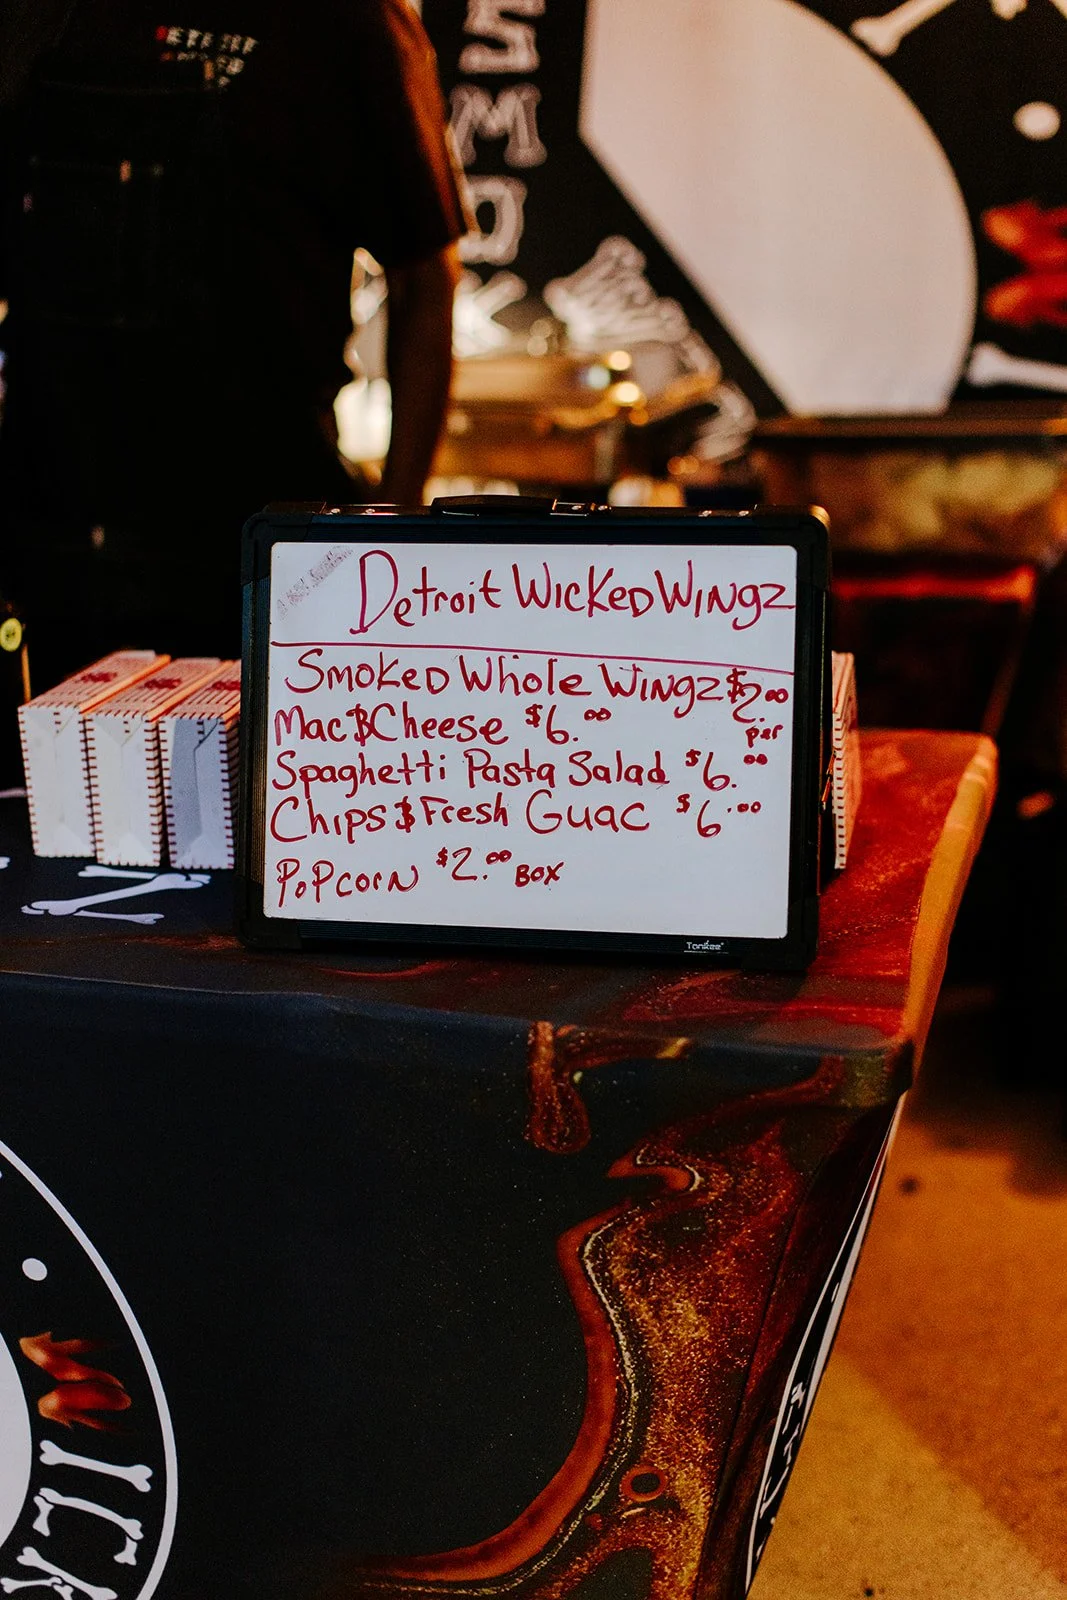 SMOK
Detroit Wicked Wingz
Smoked Whole Wingz $2.00
per
Mac & Cheese $6.00
Spaghetti Pasta Salad $6.00
Chips & Fresh Guac $6.00
PoPcorn $2.00 Box
Tonkee
ICK